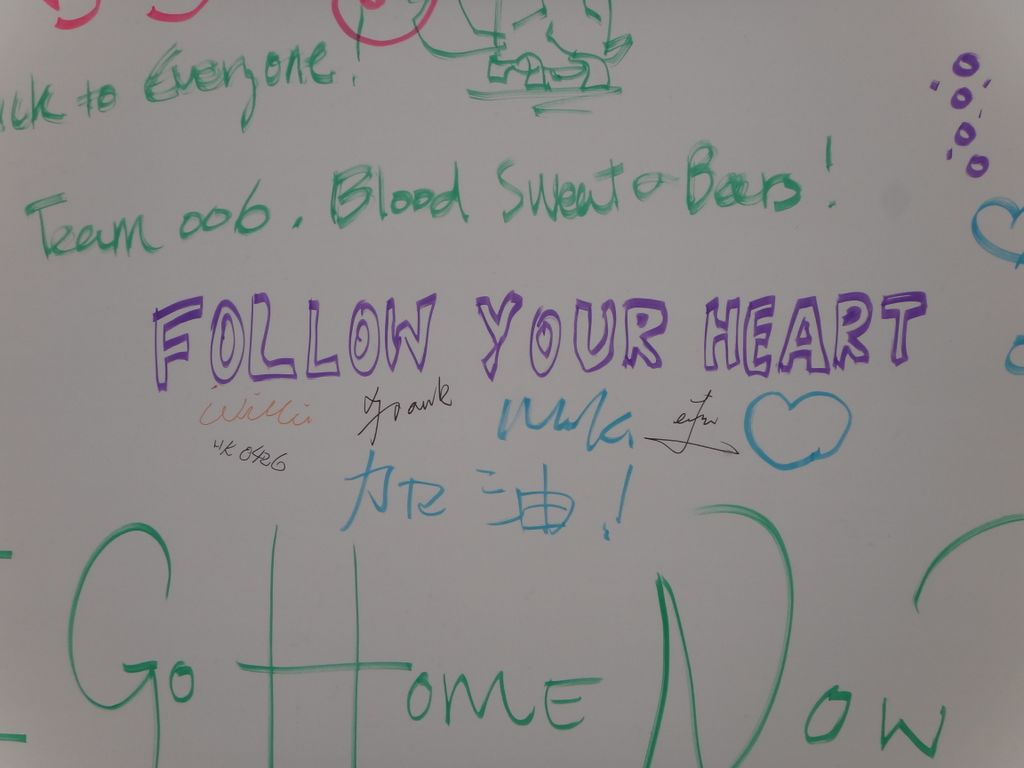 to Everyone!
Team 006. Blood Sweat & Beers!
FOLLOW YOUR HEART
Willi Frank
HK 0426
加油!
Go HOME NOW